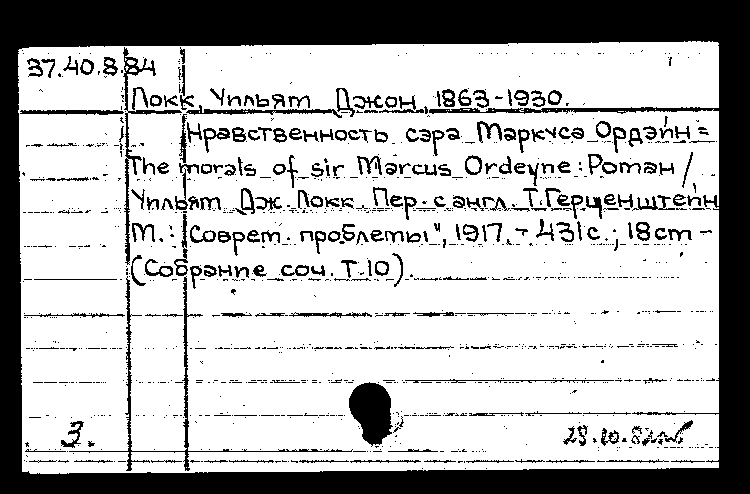 37.40.8.84
Локк, Уильям Джон, 1863-1930.
Нравственность сэра Маркуса Ордэйн =
The morals of sir Marcus Ordeyne: Роман /
Уильям Дж. Локк. Пер. с англ. Т. Герценштейн
М.: "Соврем. проблемы", 1917. - 431с.; 18 см -
(Собрание соч. Т.10).
3.